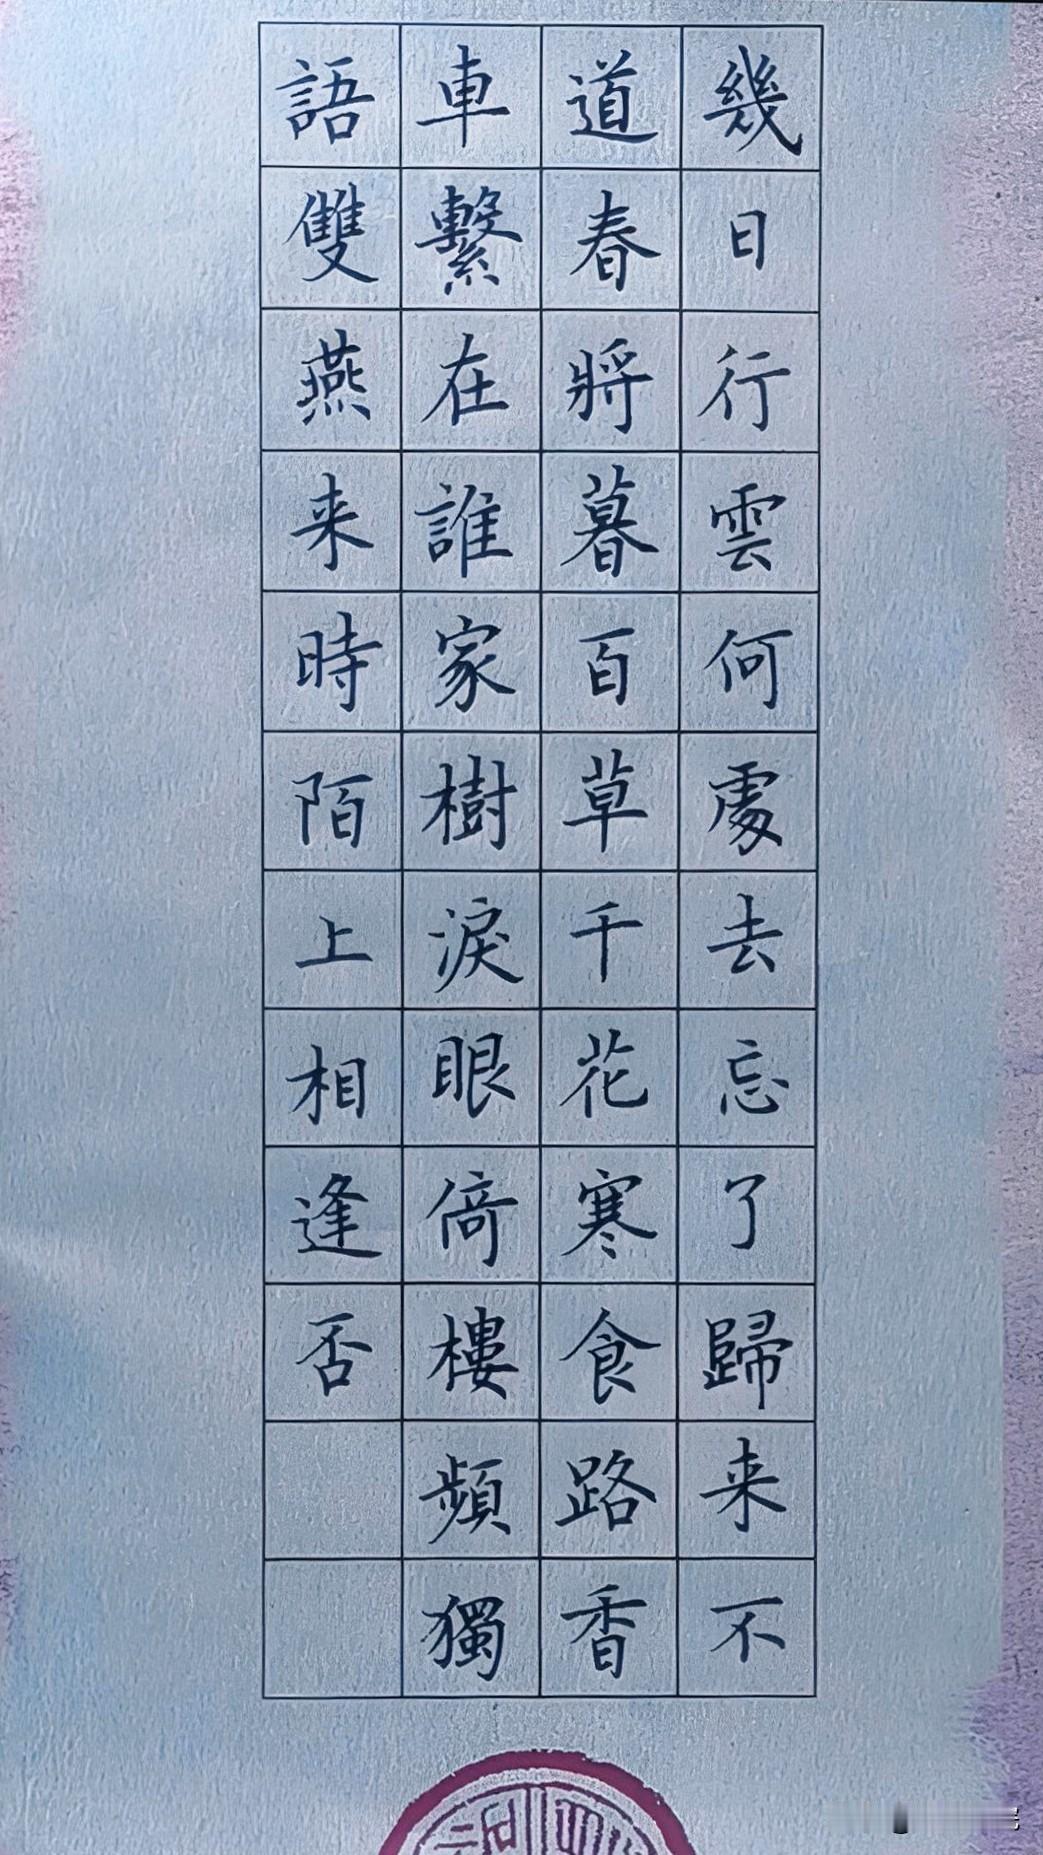 幾日行雲何處去忘了歸来不
道春將暮百草千花寒食路香
車繫在誰家樹淚眼倚樓頻獨
語雙燕来時陌上相逢否